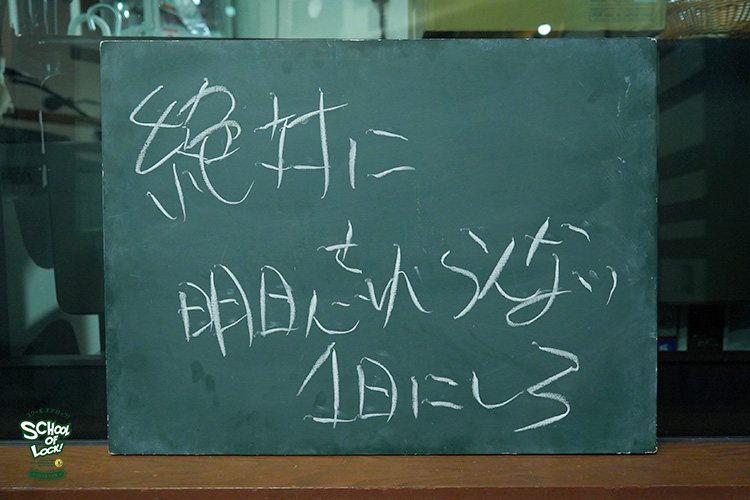 絶対に
明日忘れらんない
1日にしろ
SCHOOL
OF
LOCK!